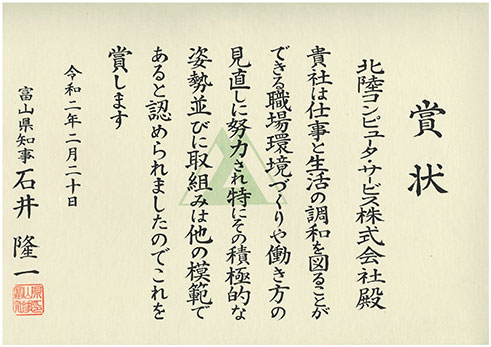 賞状
北陸コンピュータ・サービス株式会社殿
貴社は仕事と生活の調和を図ることが
できる職場環境づくりや働き方の
見直しに努力され特にその積極的な
姿勢並びに取組みは他の模範で
あると認められましたのでこれを
賞します
令和二年二月二十日
富山県知事 石井隆一